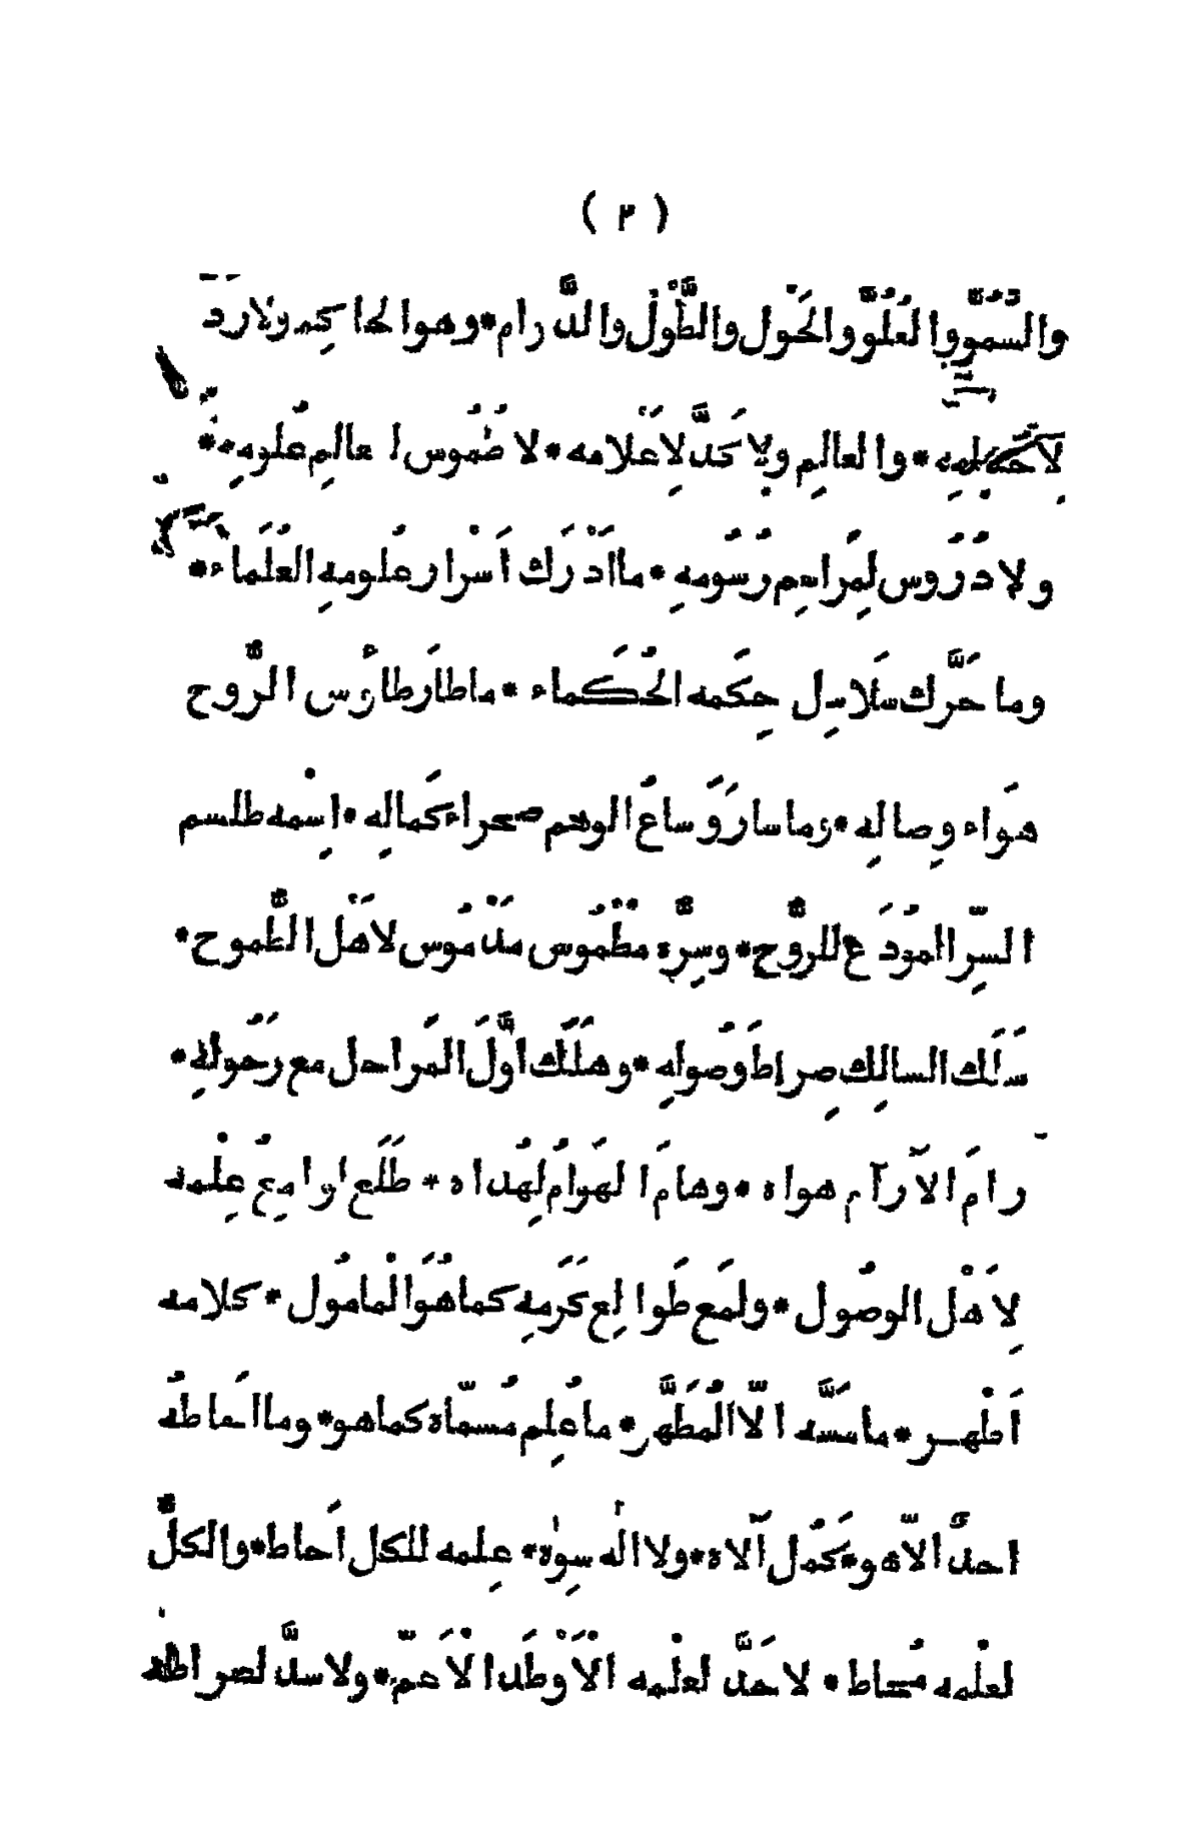 ( ٢ )
والسُّمُوّ والعُلُوّ والحَوْل والطَّوْل والدَّرام * وهو الحاكِم ولا رَدّ
لِاَحْكامِه * والعالِم ولا حَدَّ لِاَعْلامه * لا طُمُوس لمعالِم عُلومِه *
ولا دُرُوس لِمَراسِم رُسُومِه * ما اَدْرَك اَسْرار عُلومِه العُلَماء *
وما حَرَّك سَلاسِل حِكَمه الحُكماء * ما طارَ طاؤُس الرُّوح
هَواء وِصالِه * وما سارَ وَساعُ الوهم صحراء كَمالِه * اِسْمه طلسم
السِّر المُودَع للرُّوح * وسِرُّه مطْمُوس مدْمُوس لاَهْل الطُّموح *
سَلَك السالِك صِراط وُصولِه * وهَلَك اوَّلَ المَراحل مع رَحُولِه *
رامَ الآرآم هواه * وهامَ الهَوامُ لِهُداه * طَلَع لوامِعُ عِلْمه
لِاَهْل الوصُول * ولَمَع طَوالِع كَرَمِه كما هُوَ الْمامُول * كلامه
اَطْهر * ما مَسَّه الّا المُطَهَّر * ما عُلِم مُسمّاه كما هو * وما احاطهُ
احدٌ الّا هو * كَمُل آلاه * ولا اله سِوٰه * عِلمه للكل اَحاط * والكلُّ
لعلْمه مُحاط * لا حَدَّ لعلْمه الْاَوْطَد الْاَعَمّ * ولا سدَّ لصراطه